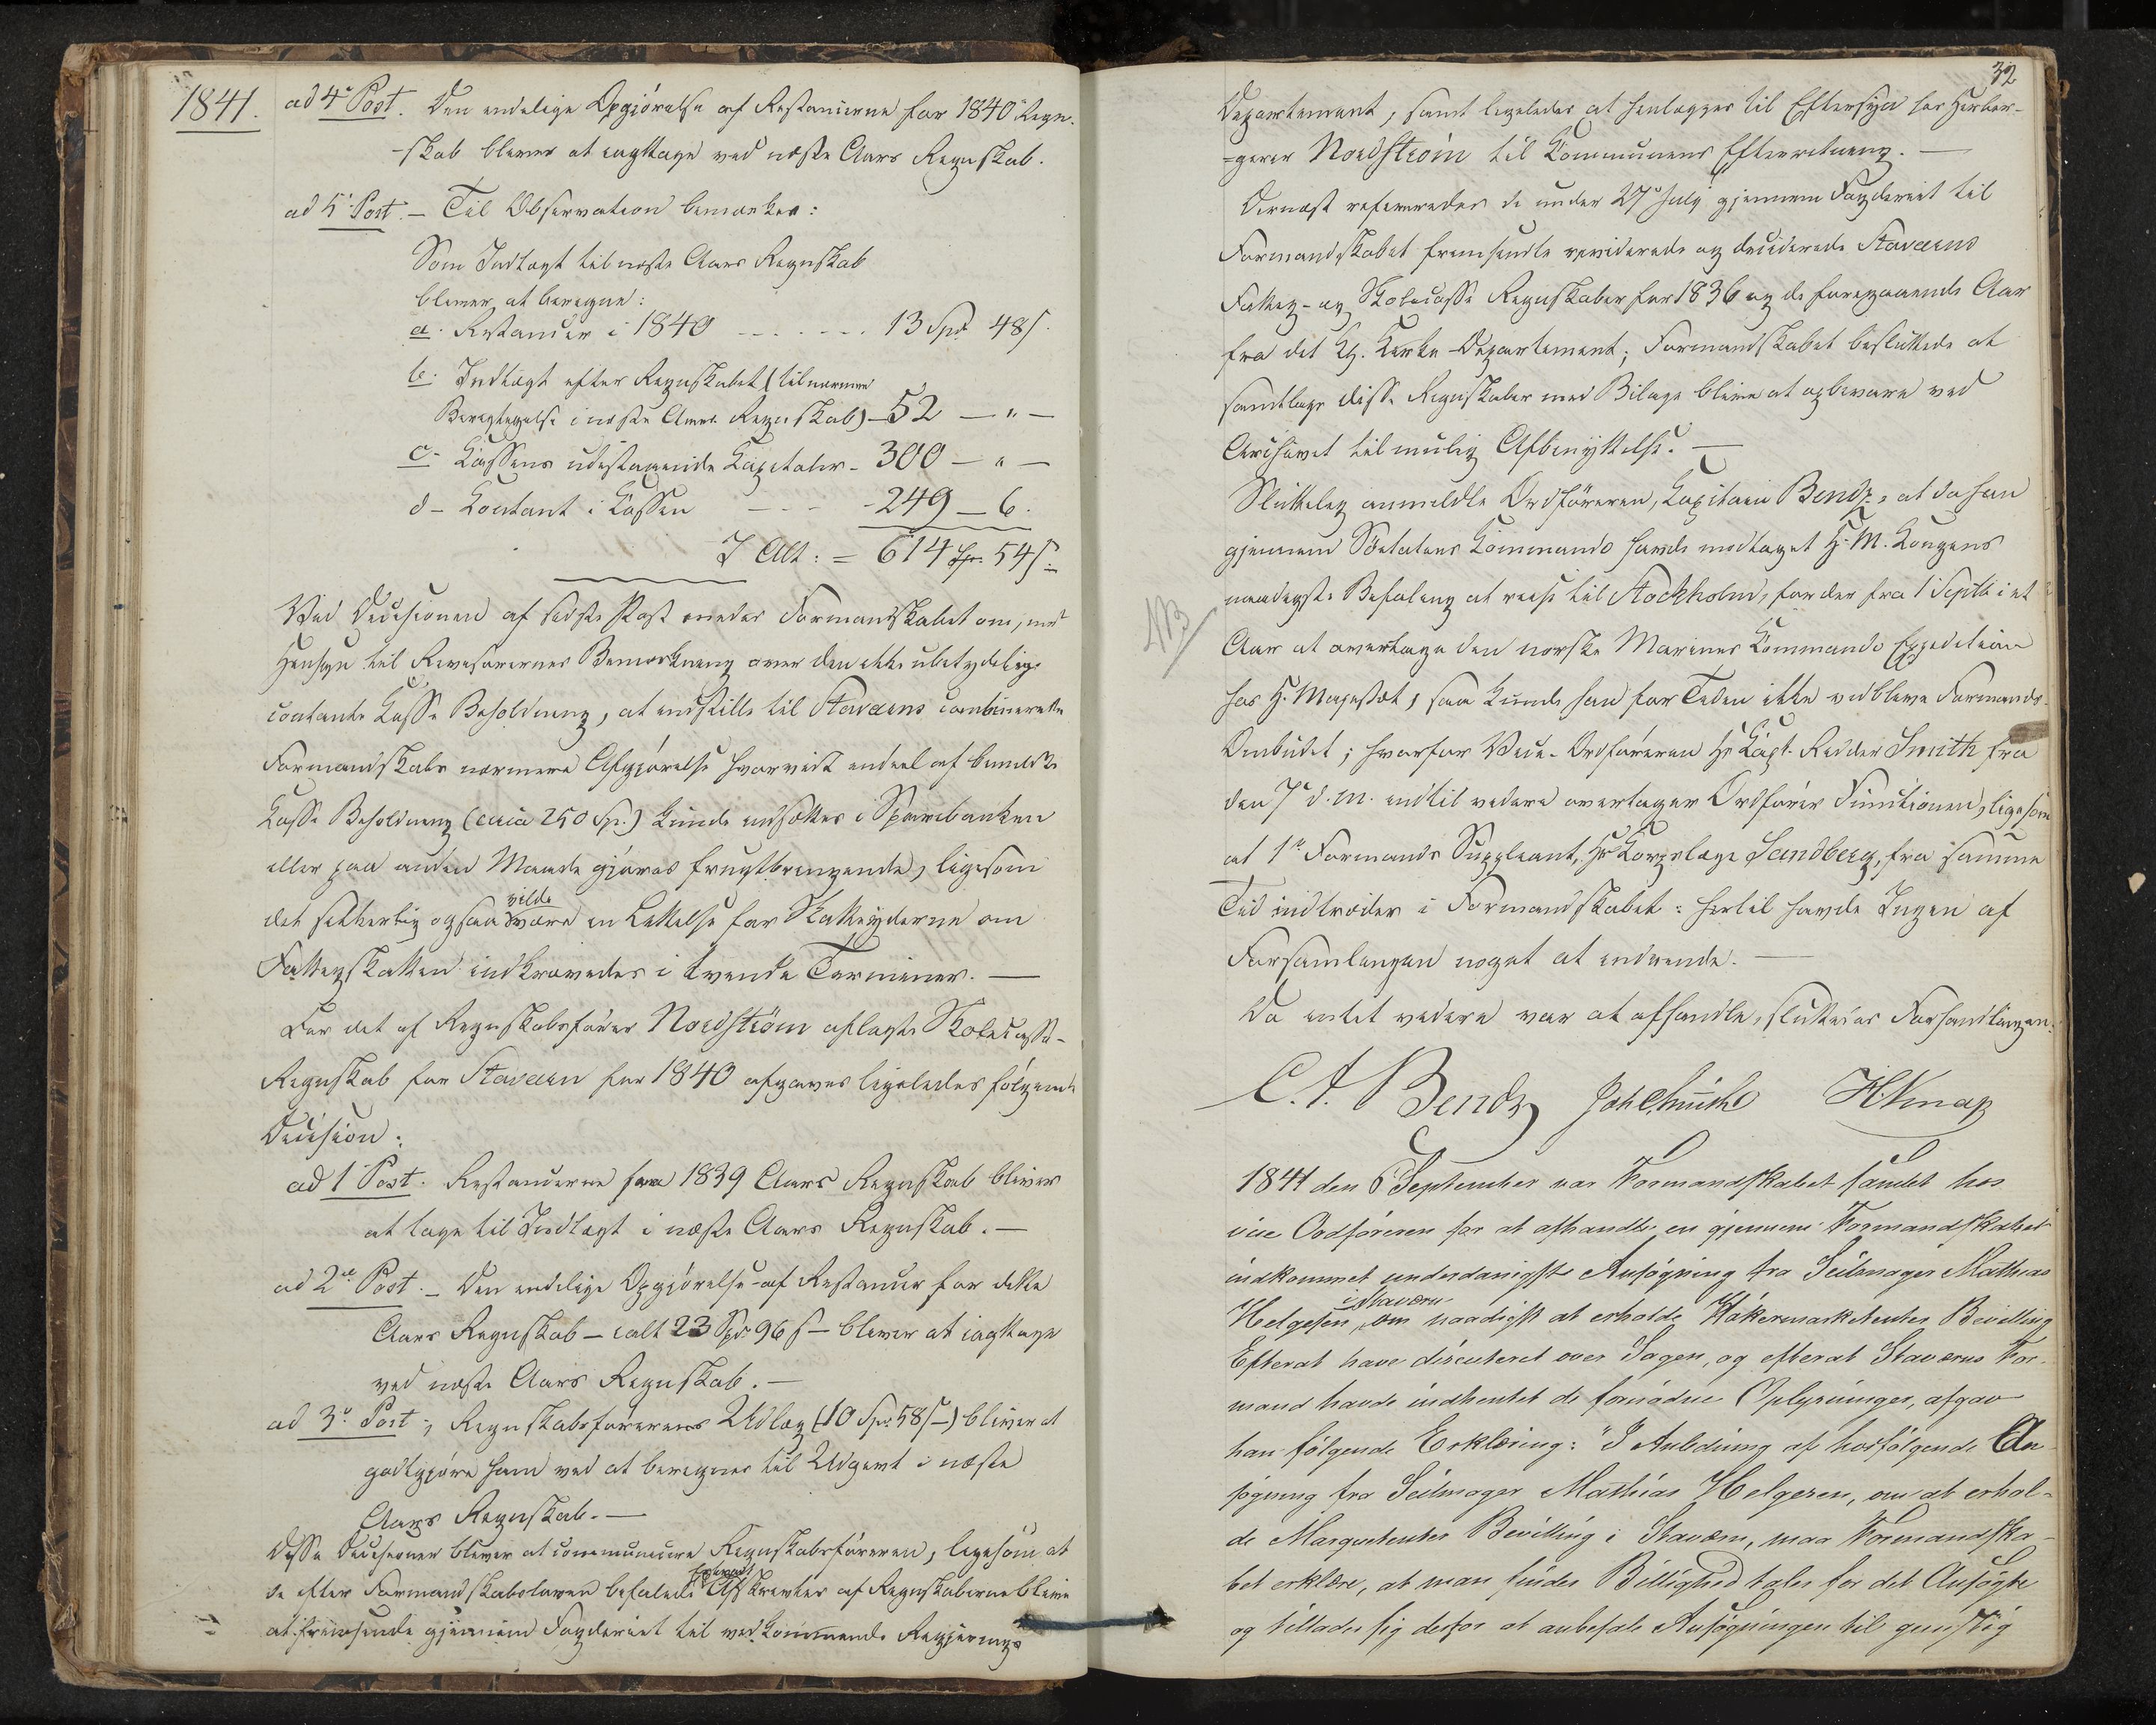 1841. ad 4de Post. Den endelige Opgjörelse af Restancerne for 1840 Regn-
-skab bliver at iagttage ved næste Aars Regnskab.
ad 5 Post. – Til Observation bemærkes:
Som Indtægt til næste Aars Regnskab
bliver at beregne:
a. Restancer i 1840 - - - - - - 13 Spd. 48 ſ.
b. Indtægt efter Regnskabet (til nærmere
Berigtigelse i næste Aars Regnskab) – 52 – " –
c. Kassens udestaaende Kapitaler – 300 – " –
d – Contant i Kassen - - - - 249 – 6.
I Alt: = 614 Spd. 54 ſ.
Ved Decisionen af sidste Post enedes Formandskabet om, med
Hensyn til Revisorernes Bemærkning over den ikke ubetydelige
contante Kasse Beholdning, at indstille til Staværns combinerede
Formandskabs nærmere Afgjörelse hvorvidt endeel af bemeldte
Kasse Beholdning (circa 250 Sp.) kunde indsættes i Sparebanken
eller paa anden Maade gjöres frugtbringende, ligesom
det sikkerlig ogsaa vilde være en Lettelse for Skatteyderne om
Fattigskatten indkrævedes i tvende Terminer. —
For det af Regnskabsförer Nordström aflagte Skolecasse-
Regnskab for Staværn for 1840 afgaves ligeledes fölgende
Decision:
ad 1 Post. Restancerne fra 1839 Aars Regnskab bliver
at tage til Indtægt i næste Aars Regnskab. –
ad 2de Post. – Den endelige Opgjörelse af Restancer for dette
Aars Regnskab – ialt 23 Spd. 96 ſ – bliver at iagttage
ved næste Aars Regnskab. –
ad 3de Post –, Regnskabsförerens Udlæg (10 Spd. 58 ſ –) bliver at
godtgjöre ham ved at beregnes til Udgivt i næste
Aars Regnskab. —
Disse Decisioner bliver at communicere Regnskabsföreren, ligesom at
de efter Formandskabsloven befalede Afskrivter af Regnskaberne blive
at fremsende gjennem Fogderiet til vedkommende Regjerings
32
Departement, samt ligeledes at henlægges til Eftersyn hos Herber-
=gerer Nordström til Kommunens Efterretning. —
Dernæst refereredes de under 27de July gjennem Fogderiet til
Formandskabet fremsendte reviderede og deciderede Staværns
Fattig- og Skolecasse Regnskaber for 1836 og de foregaaende Aar
fra det Kgl. Kirke-Departement; Formandskabet besluttede at
samtlige disse Regnskaber med Bilage blive at opbevare ved
Archivet til mulig Afbenyttelse. —
Sluttelig anmeldte Ordföreren, Kapitain Bendz, at da han
gjennem Söetatens Kommando havde modtaget H. M. Kongens
NB
naadigste Befaling at reise til Stockholm, for der fra 1 Septbr i et
Aar at overtage den norske Marines Kommando Expedition
hos H. Majestæt, saa kunde han for Tiden ikke vedblive Formands-
Ombudet; hvorfor Vice-Ordföreren Hr Capt. Ridder Smith fra
den 7de d. M. indtil videre overtager Ordförer Functionen, ligesom
at 1ste Formands Suppleant, Hr Korpslæge Sandberg, fra samme
Tid indtræder i Formandskabet: hertil havde Ingen af
Forsamlingen noget at indvende. —
Da intet videre var at afhandle, sluttedes Forhandlingen.
C. F. Bendz Joh Smith H. Knap
1841 den 6 September var Formandskabet samlet hos
vice Ordföreren for at afhandle en gjennem Formandskabet
indkommet underdanigste Ansögning fra Seilmager Mathias
Helgesen i Staværn, om naadigst at erholde Hökermarketenter Bevilling
Efterat have discuteret over Sagen, og efterat Staværns For-
mand havde indhentet de fornödne Oplysninger, afgav
han fölgende Erklæring: "I Anledning af hosfölgende An-
sögning fra Seilmager Mathias Helgesen, om at erhol-
de Marquetenter Bevilling i Staværn, maa Formandska-
bet erklære, at man finder Billighed taler for det Ansögte
og tillader sig derfor at anbefale Ansögningen til gunstig